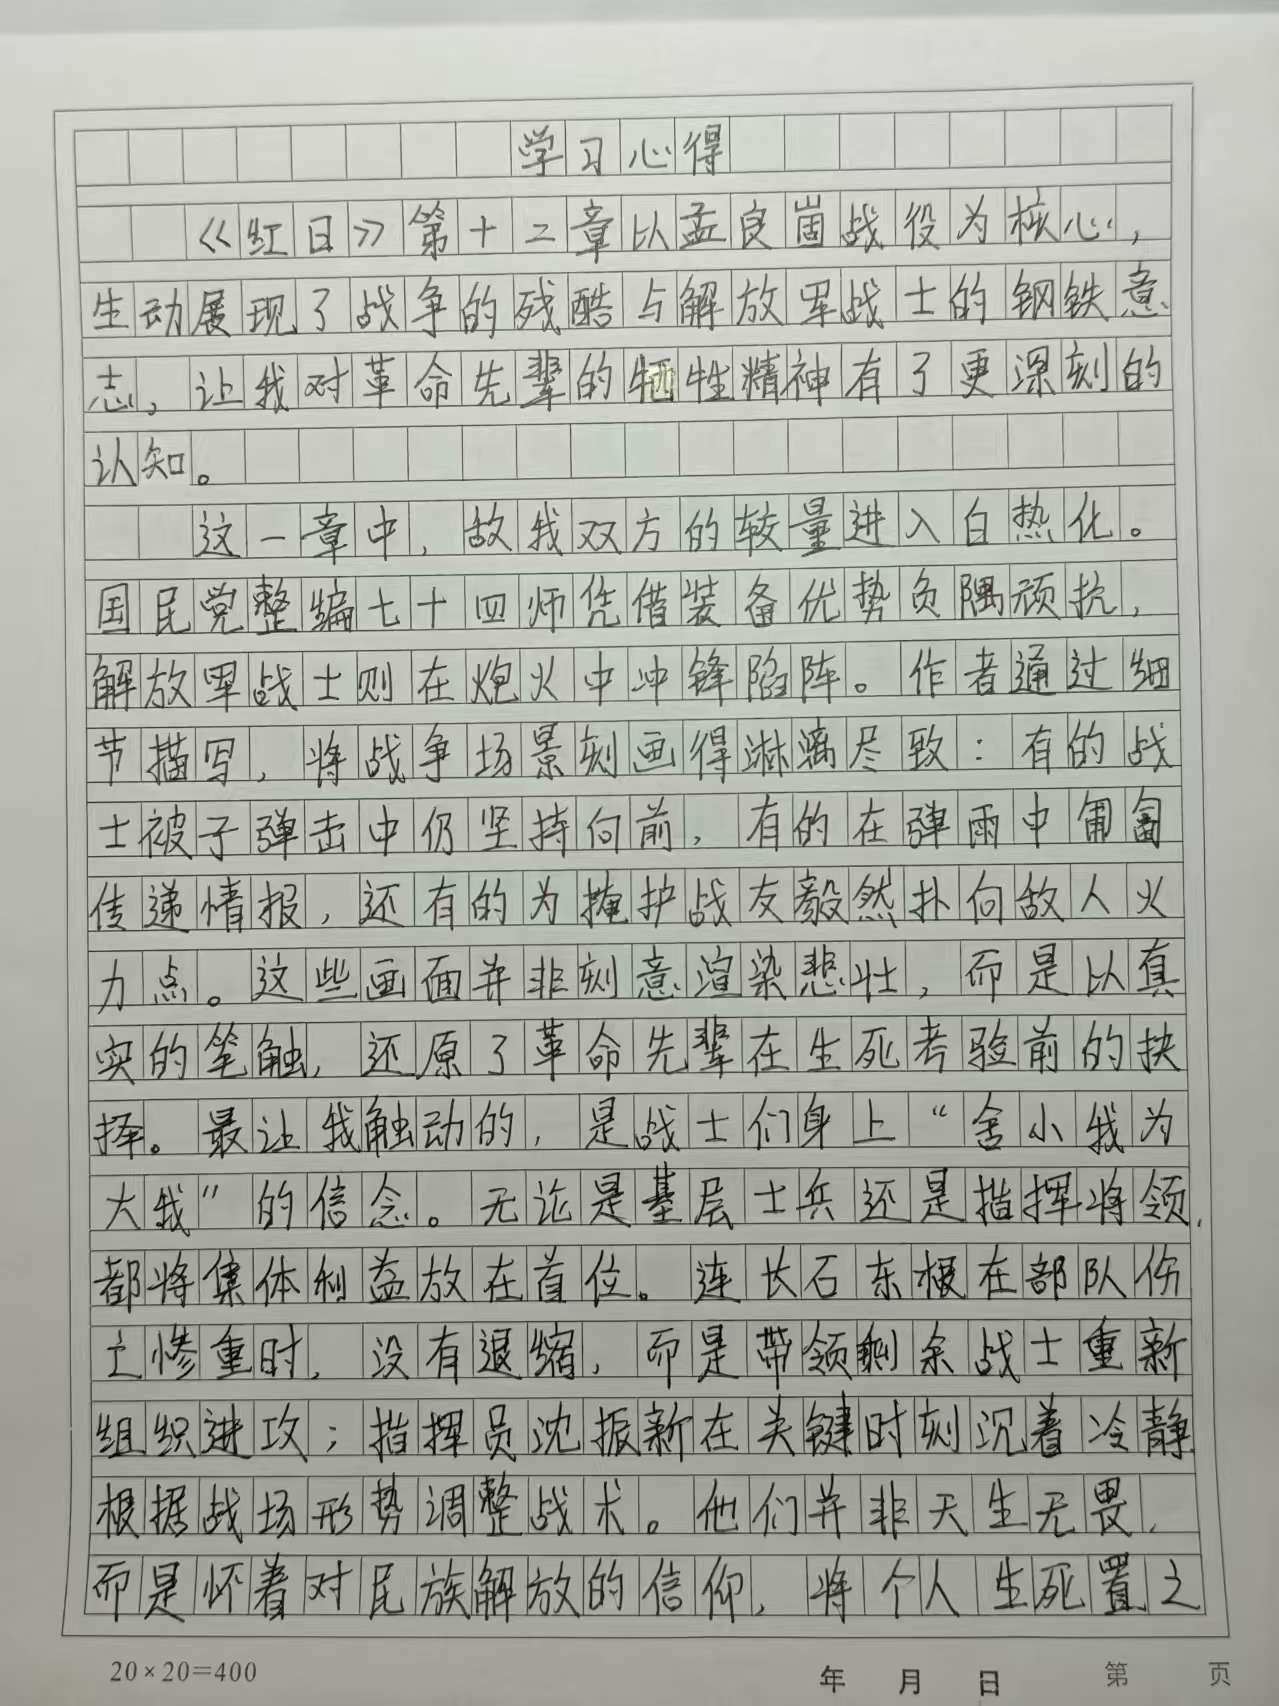 学习心得
《红日》第十二章以孟良崮战役为核心，
生动展现了战争的残酷与解放军战士的钢铁意
志，让我对革命先辈的牺牲精神有了更深刻的
认知。
这一章中，敌我双方的较量进入白热化。
国民党整编七十四师凭借装备优势负隅顽抗，
解放军战士则在炮火中冲锋陷阵。作者通过细
节描写，将战争场景刻画得淋漓尽致：有的战
士被子弹击中仍坚持向前，有的在弹雨中匍匐
传递情报，还有的为掩护战友毅然扑向敌人火
力点。这些画面并非刻意渲染悲壮，而是以真
实的笔触，还原了革命先辈在生死考验前的抉
择。最让我触动的，是战士们身上“舍小我为
大我”的信念。无论是基层士兵还是指挥将领，
都将集体利益放在首位。连长石东根在部队伤
亡惨重时，没有退缩，而是带领剩余战士重新
组织进攻；指挥员沈振新在关键时刻沉着冷静
根据战场形势调整战术。他们并非天生无畏，
而是怀着对民族解放的信仰，将个人生死置之
20×20=400
年 月 日 第 页